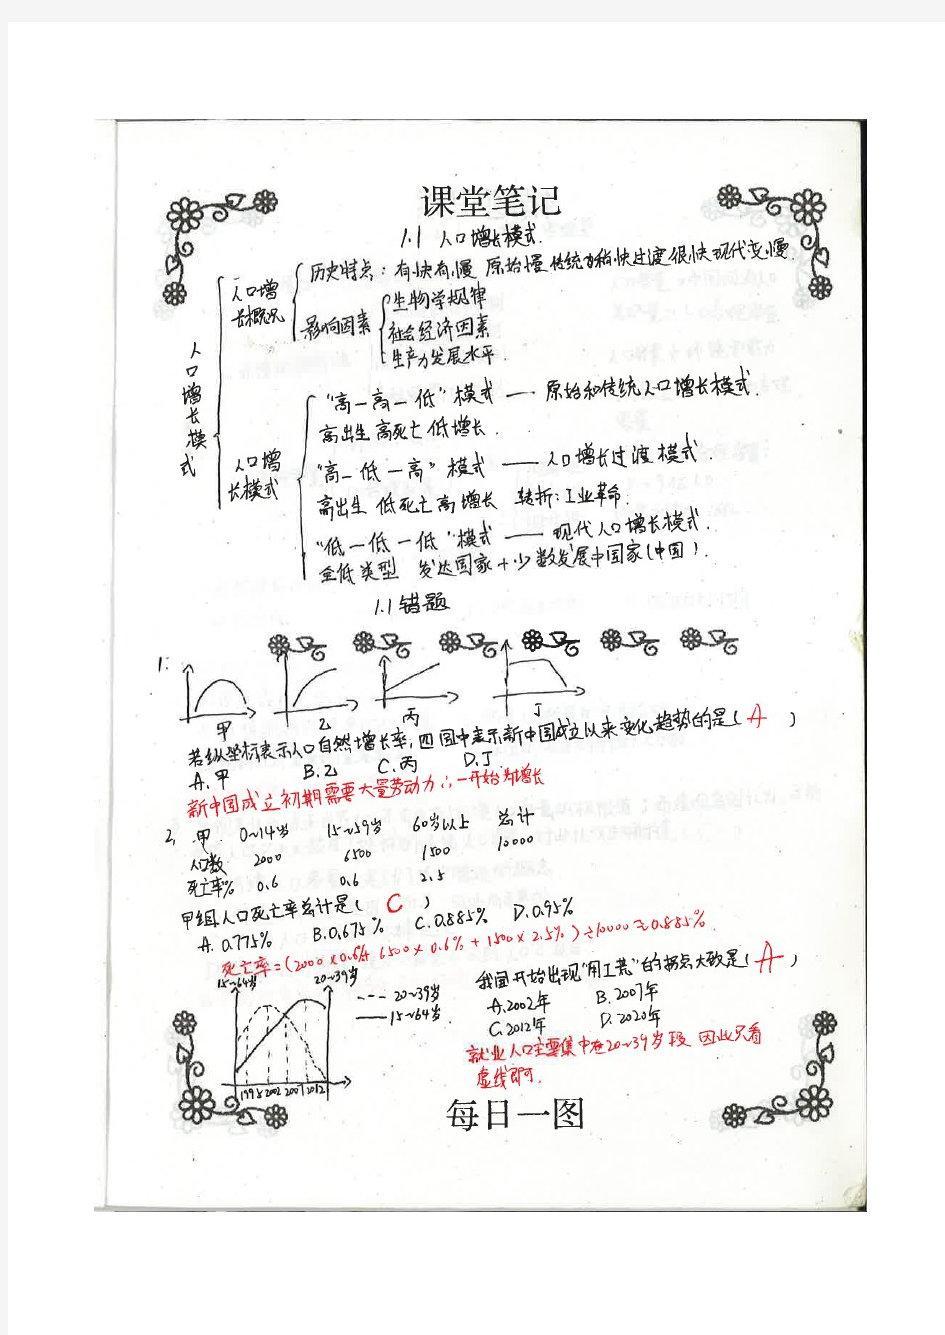 课堂笔记
1.1 人口增长模式.
人口增长模式
人口增长概况
历史特点：有快有慢 原始慢 传统稍快过渡很快现代变慢.
影响因素
生物学规律
社会经济因素
生产力发展水平.
人口增长模式
"高—高—低"模式 —— 原始和传统人口增长模式.
高出生 高死亡 低增长.
"高—低—高"模式 —— 人口增长过渡模式
高出生 低死亡 高增长 转折：工业革命.
"低—低—低"模式 —— 现代人口增长模式.
全低类型 发达国家+少数发展中国家(中国).
1.1 错题
1.
甲 乙 丙 丁
若纵坐标表示人口自然增长率，四图中表示新中国成立以来变化趋势的是( A )
A.甲 B.乙 C.丙 D.丁
新中国成立初期需要大量劳动力∴一开始为增长
2. 甲 0~14岁 15~59岁 60岁以上 总计
人口数 2000 6500 1500 10000
死亡率% 0.6 0.6 2.5
甲组人口死亡率总计是( C )
A. 0.775% B.0.675% C.0.885% D.0.95%
死亡率=(2000×0.6%+6500×0.6%+1500×2.5%)÷10000≈0.885%
15~64岁 20~39岁
--- 20~39岁
—— 15~64岁
1998 2002 2007 2012
我国开始出现"用工荒"的拐点大致是( A )
A.2002年 B.2007年
C.2012年 D.2020年
就业人口主要集中在20~39岁段 因此只看
虚线即可.
每日一图